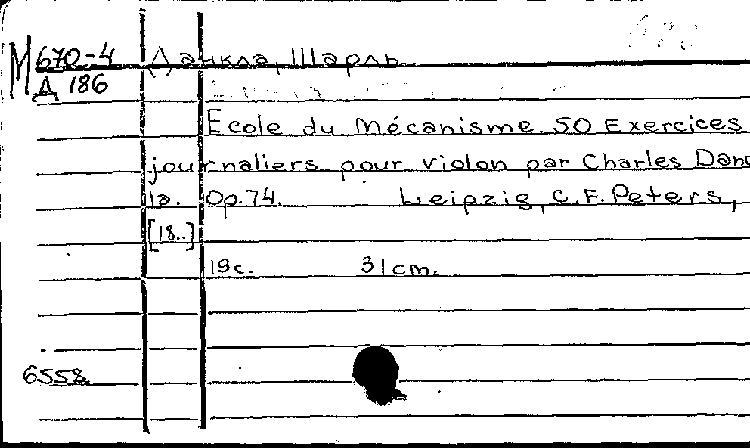 М 670-4 Данкла, Шарль
Д 186
Ecole du Mécanisme. 50 Exercices
journaliers pour violon par Charles Danc
la. Op.74. Leipzig, C.F.Peters,
[18..]
19c. 31cm.
6558.